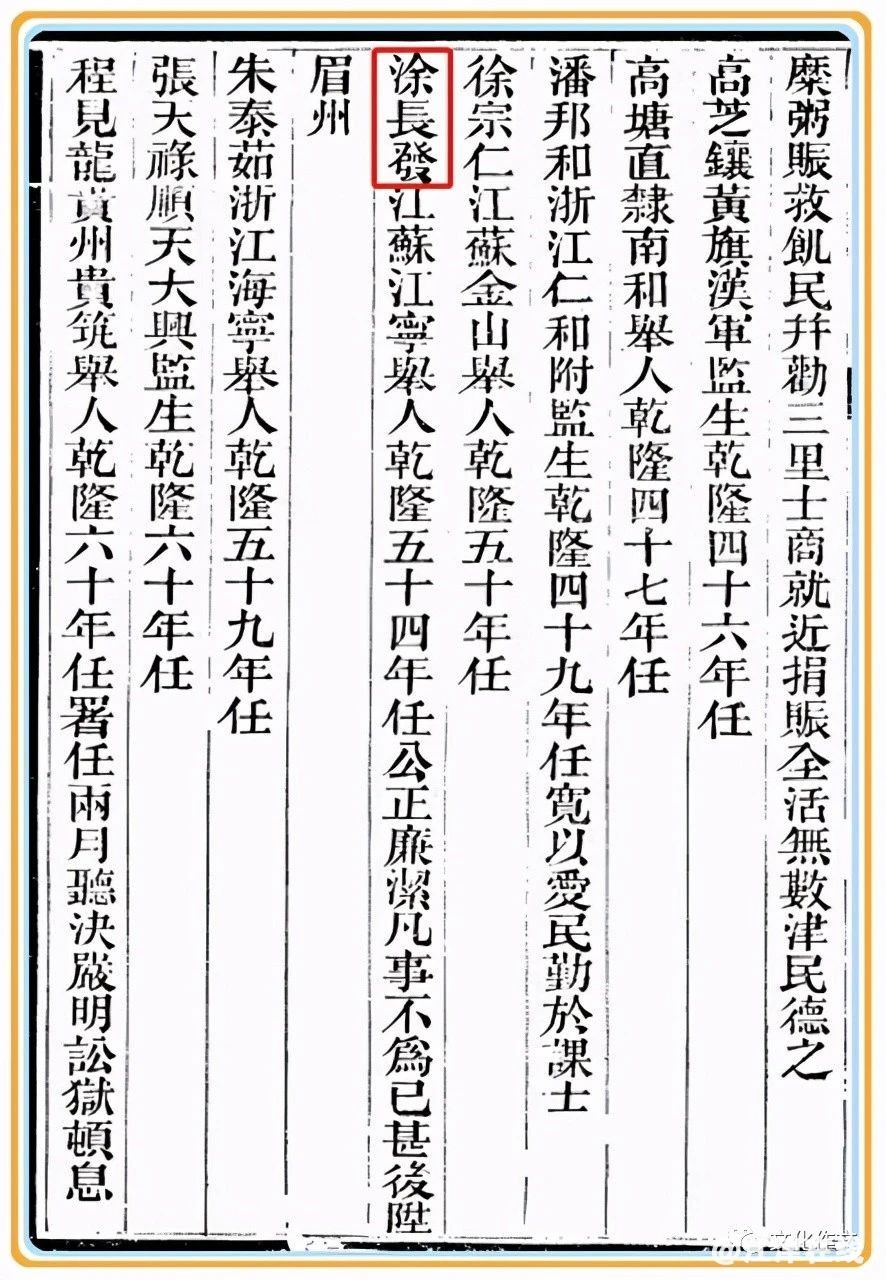 糜粥賑救飢民幷勸三里士商就近捐賑全活無數津民德之
高芝鑲黃旗漢軍監生乾隆四十六年任
高塘直隸南和舉人乾隆四十七年任
潘邦和浙江仁和附監生乾隆四十九年任寬以愛民勤於課士
徐宗仁江蘇金山舉人乾隆五十年任
涂長發江蘇江寧舉人乾隆五十四年任公正廉潔凡事不爲已甚後陞
眉州
朱泰茹浙江海寧舉人乾隆五十九年任
張天祿順天大興監生乾隆六十年任
程見龍貴州貴筑舉人乾隆六十年任署任兩月聽決嚴明訟獄頓息